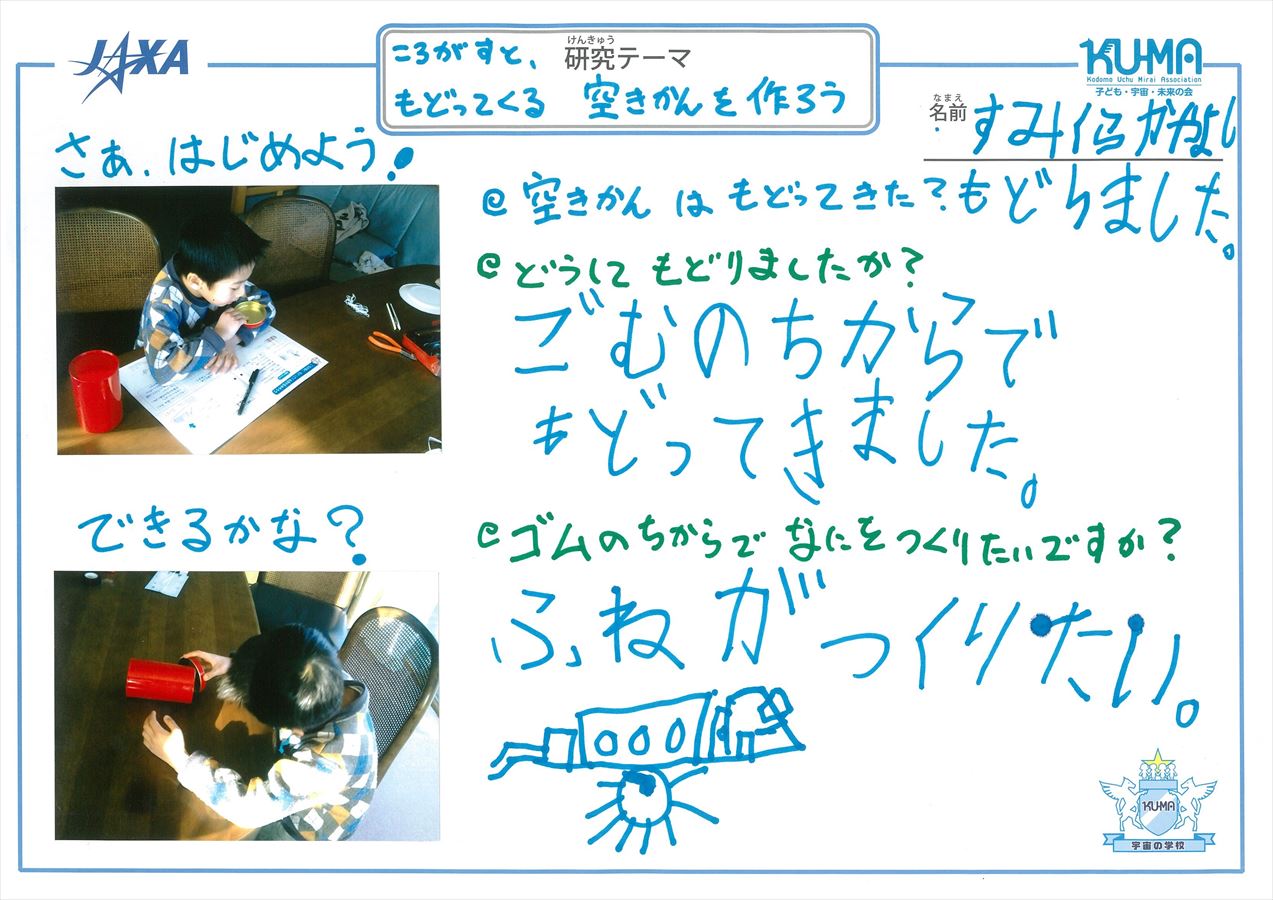 JAXA
けんきゅう
研究テーマ
ころがすと、
もどってくる 空きかんを作ろう
KU-MA
Kodomo Uchu Mirai Association
子ども・宇宙・未来の会
なまえ
名前
さぁ、はじめよう!
@ 空きかん は もどってきた? もどりました。
@ どうして もどりましたか?
ごむのちからで
もどってきました。
できるかな?
@ ゴムのちからで なにを つくりたいですか?
ふねが つくりたい。
KU-MA
宇宙の学校